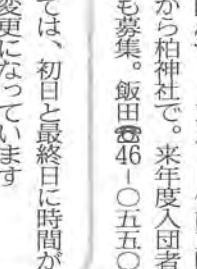 から柏神社で。来年度入団者
も募集。飯田☎46-〇五五〇
ては、初日と最終日に時間が
変更になっています